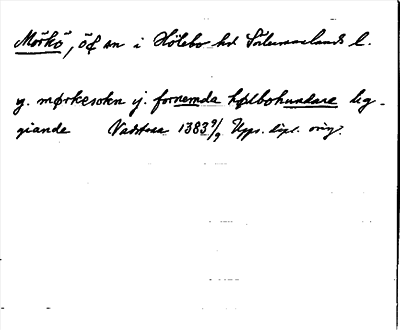 Mörkö, ö & sn i Hölebo hd Södermanlands l.
y. mørkesokn ij. fornemda hølbohundare lig-
giande Vadstena 1383 9/9 Upps. dipl. orig.